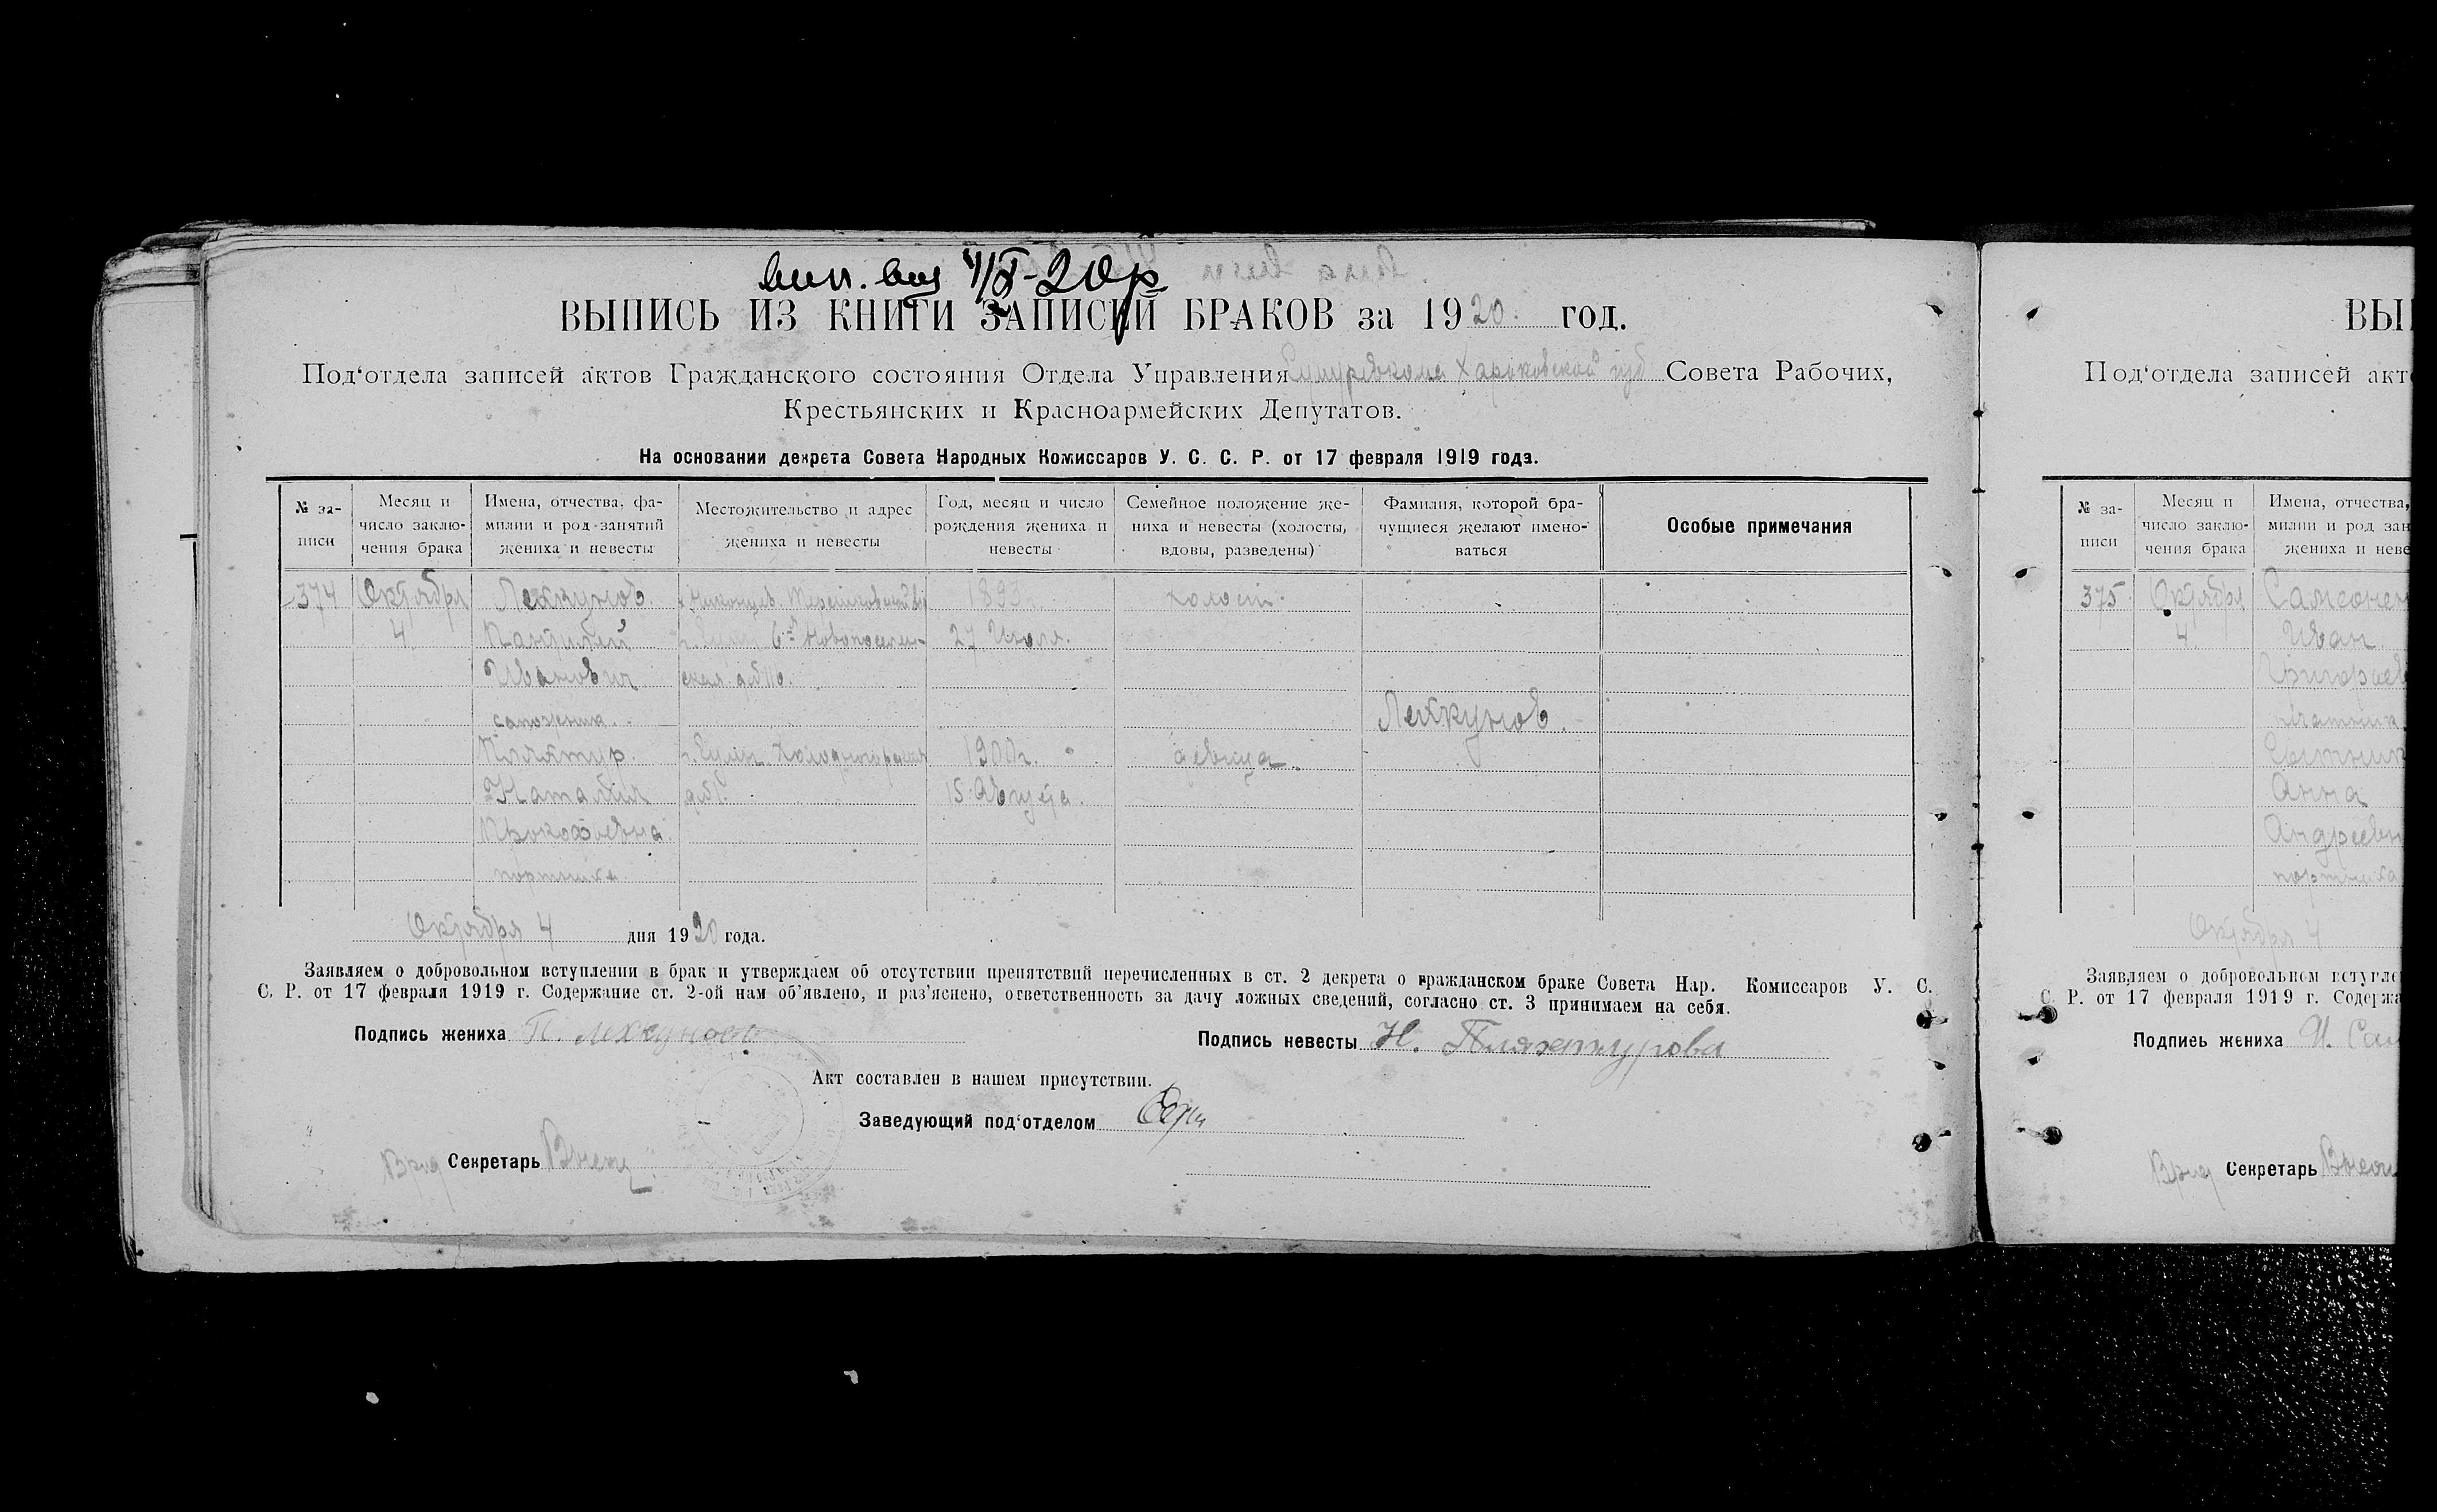 вип. вид 4/X-20р
ВЫПИСЬ ИЗ КНИГИ ЗАПИСЕЙ БРАКОВ за 1920 год.
Под‘отдела записей актов Гражданского состояния Отдела Управления Сумуревкома Харьковской губ Совета Рабочих,
Крестьянских и Красноармейских Депутатов.
На основании декрета Совета Народных Комиссаров У. С. С. Р. от 17 февраля 1919 года.
№ за-
писи
Месяц и
число заклю-
чения брака
Имена, отчества, фа-
милии и род занятий
жениха и невесты
Местожительство и адрес
жениха и невесты
Год, месяц и число
рождения жениха и
невесты
Семейное положение же-
ниха и невесты (холосты,
вдовы, разведены)
Фамилия, которой бра-
чущиеся желают имено-
ваться
Особые примечания
374 Октября Лехкунов. 1893 холост.
4. 6-я Новопоселен- 27 Июля.
Иванович ская д №10.
сапожник.
Лехкунов.
Пляхтур. г. Сумы 1900г. девица.
Наталия д №1. 15 Августа.
Прокофиевна
портниха
Октября 4 дня 1920 года.
Заявляем о добровольном вступлении в брак и утверждаем об отсутствии препятствий перечисленных в ст. 2 декрета о гражданском браке Совета Нар. Комиссаров У. С.
С. Р. от 17 февраля 1919 г. Содержание ст. 2-ой нам об’явлено, и раз’яснено, ответственность за дачу ложных сведений, согласно ст. 3 принимаем на себя.
Подпись жениха П. Лехкуновъ
Подпись невесты Н. Пляхтурова
Акт составлен в нашем присутствии.
Заведующий под‘отделом
Врид Секретарь
ВЫП
Под‘отдела записей акто
№ за-
писи
Месяц и
число заклю-
чения брака
Имена, отчества,
милии и род зан
жениха и неве
375 Октября Самсонен
4. Иван
Григорьев
Анна
Андреевн
портниха
Октября 4
Заявляем о добровольном вступле
С. Р. от 17 февраля 1919 г. Содержа
Подпись жениха И. Сам
Врид Секретарь